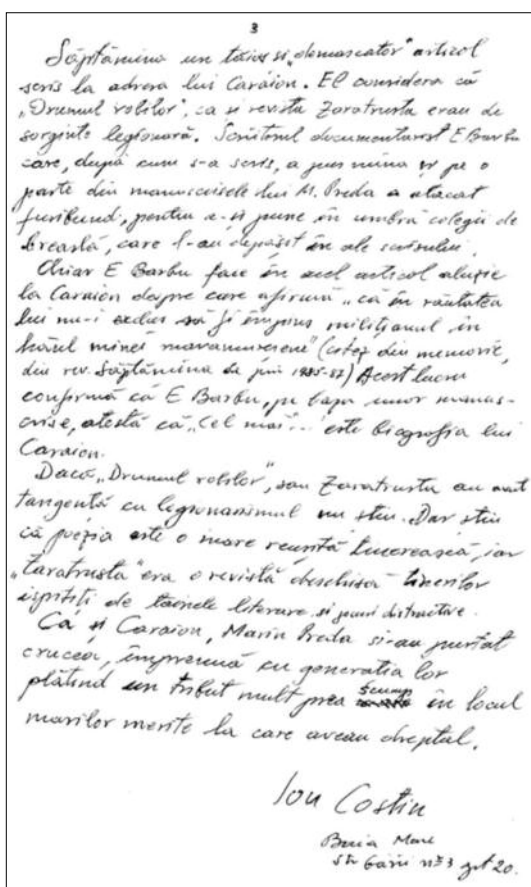 3
Săptămîna un tăios și „demascator" articol
scris la adresa lui Caraion. El considera că
„Drumul robilor", ca și revista Zaratrusta erau de
sorginte legionară. Scriitorul documentarist E Barbu
care, după cum s-a scris, a pus mîna și pe o
parte din manuscrisele lui M. Preda a atacat
furibund, pentru a-și pune în umbră colegii de
breaslă, care l-au depășit în ale scrisului.
Chiar E Barbu face în acel articol aluzie
la Caraion despre care afirmă „că în răutatea
lui mi-i să fi împins milițianul în
hăul minei maramureșene" (citez din memorie,
din rev. Săptămîna de prin 1985-87) Acest lucru
confirmă că E Barbu, pe baza unor manus-
crise, atestă că „Cel mai"... este biografia lui
Caraion.
Dacă „Drumul robilor", sau Zaratrusta au avut
tangență cu legionarismul nu știu. Dar știu
că poezia este o mare reușită tinerească, iar
„Zaratrusta" era o revistă deschisă tinerilor
ispitiți de tainele literare și jocuri distractive.
Ca și Caraion, Marin Preda și-au purtat
crucea, împreună cu generatia lor
plătind un tribut mult prea scump în locul
marilor merite la care aveau dreptul.
Ion Costin
Baia Mare
Str Gării nr 3 apt 20.